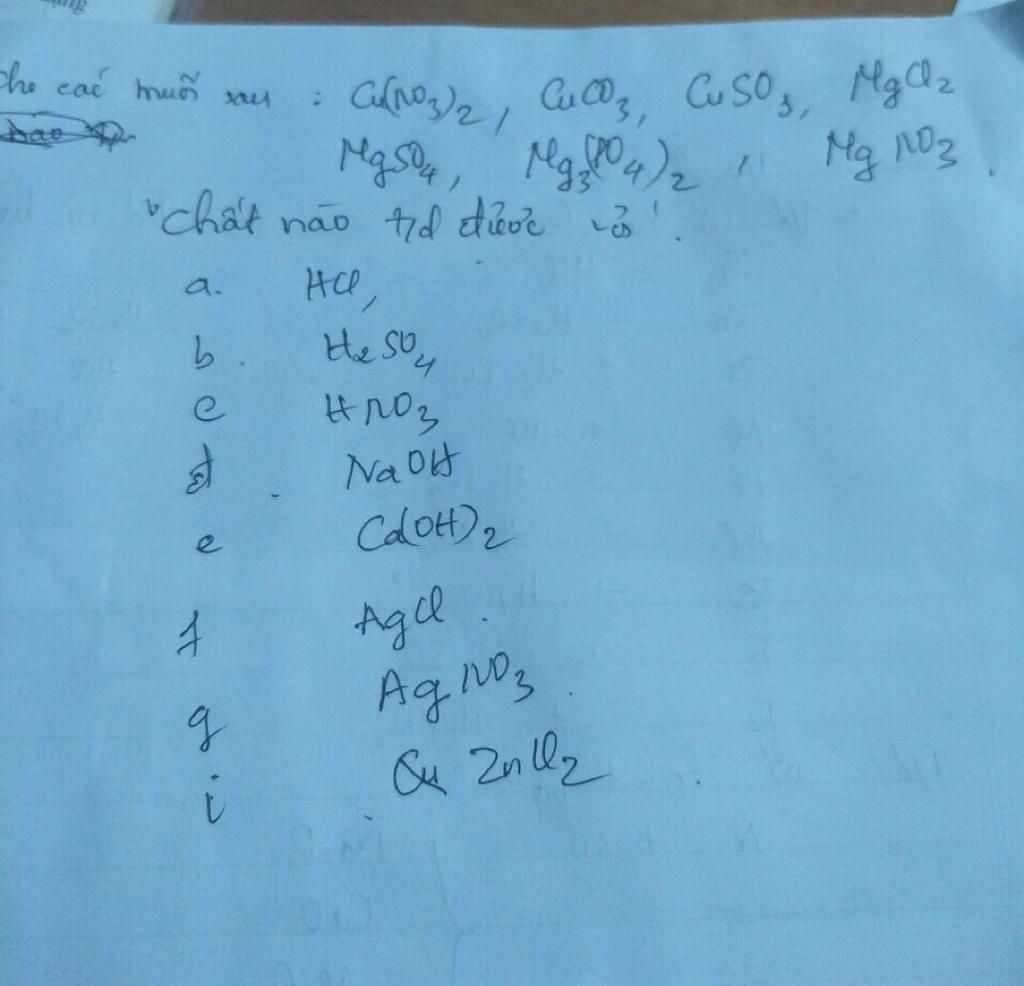 Cho các muối sau : Cu(NO3)2, CuCO3, CuSO3, MgCl2
MgSO4, Mg3(PO4)2, MgNO3.
Chất nào t/d được với.
a. HCl,
b. H2SO4
c HNO3
d. NaOH
e Ca(OH)2
f AgCl.
g AgNO3.
i. ZnCl2